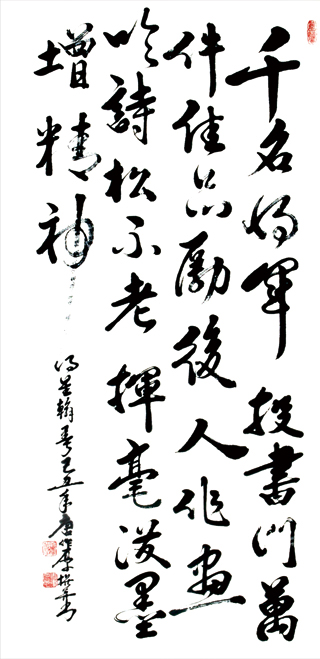 千名将軍投書門萬
件佳品勵後人作畫
吟詩松不老揮毫潑墨
增精神
己丑年